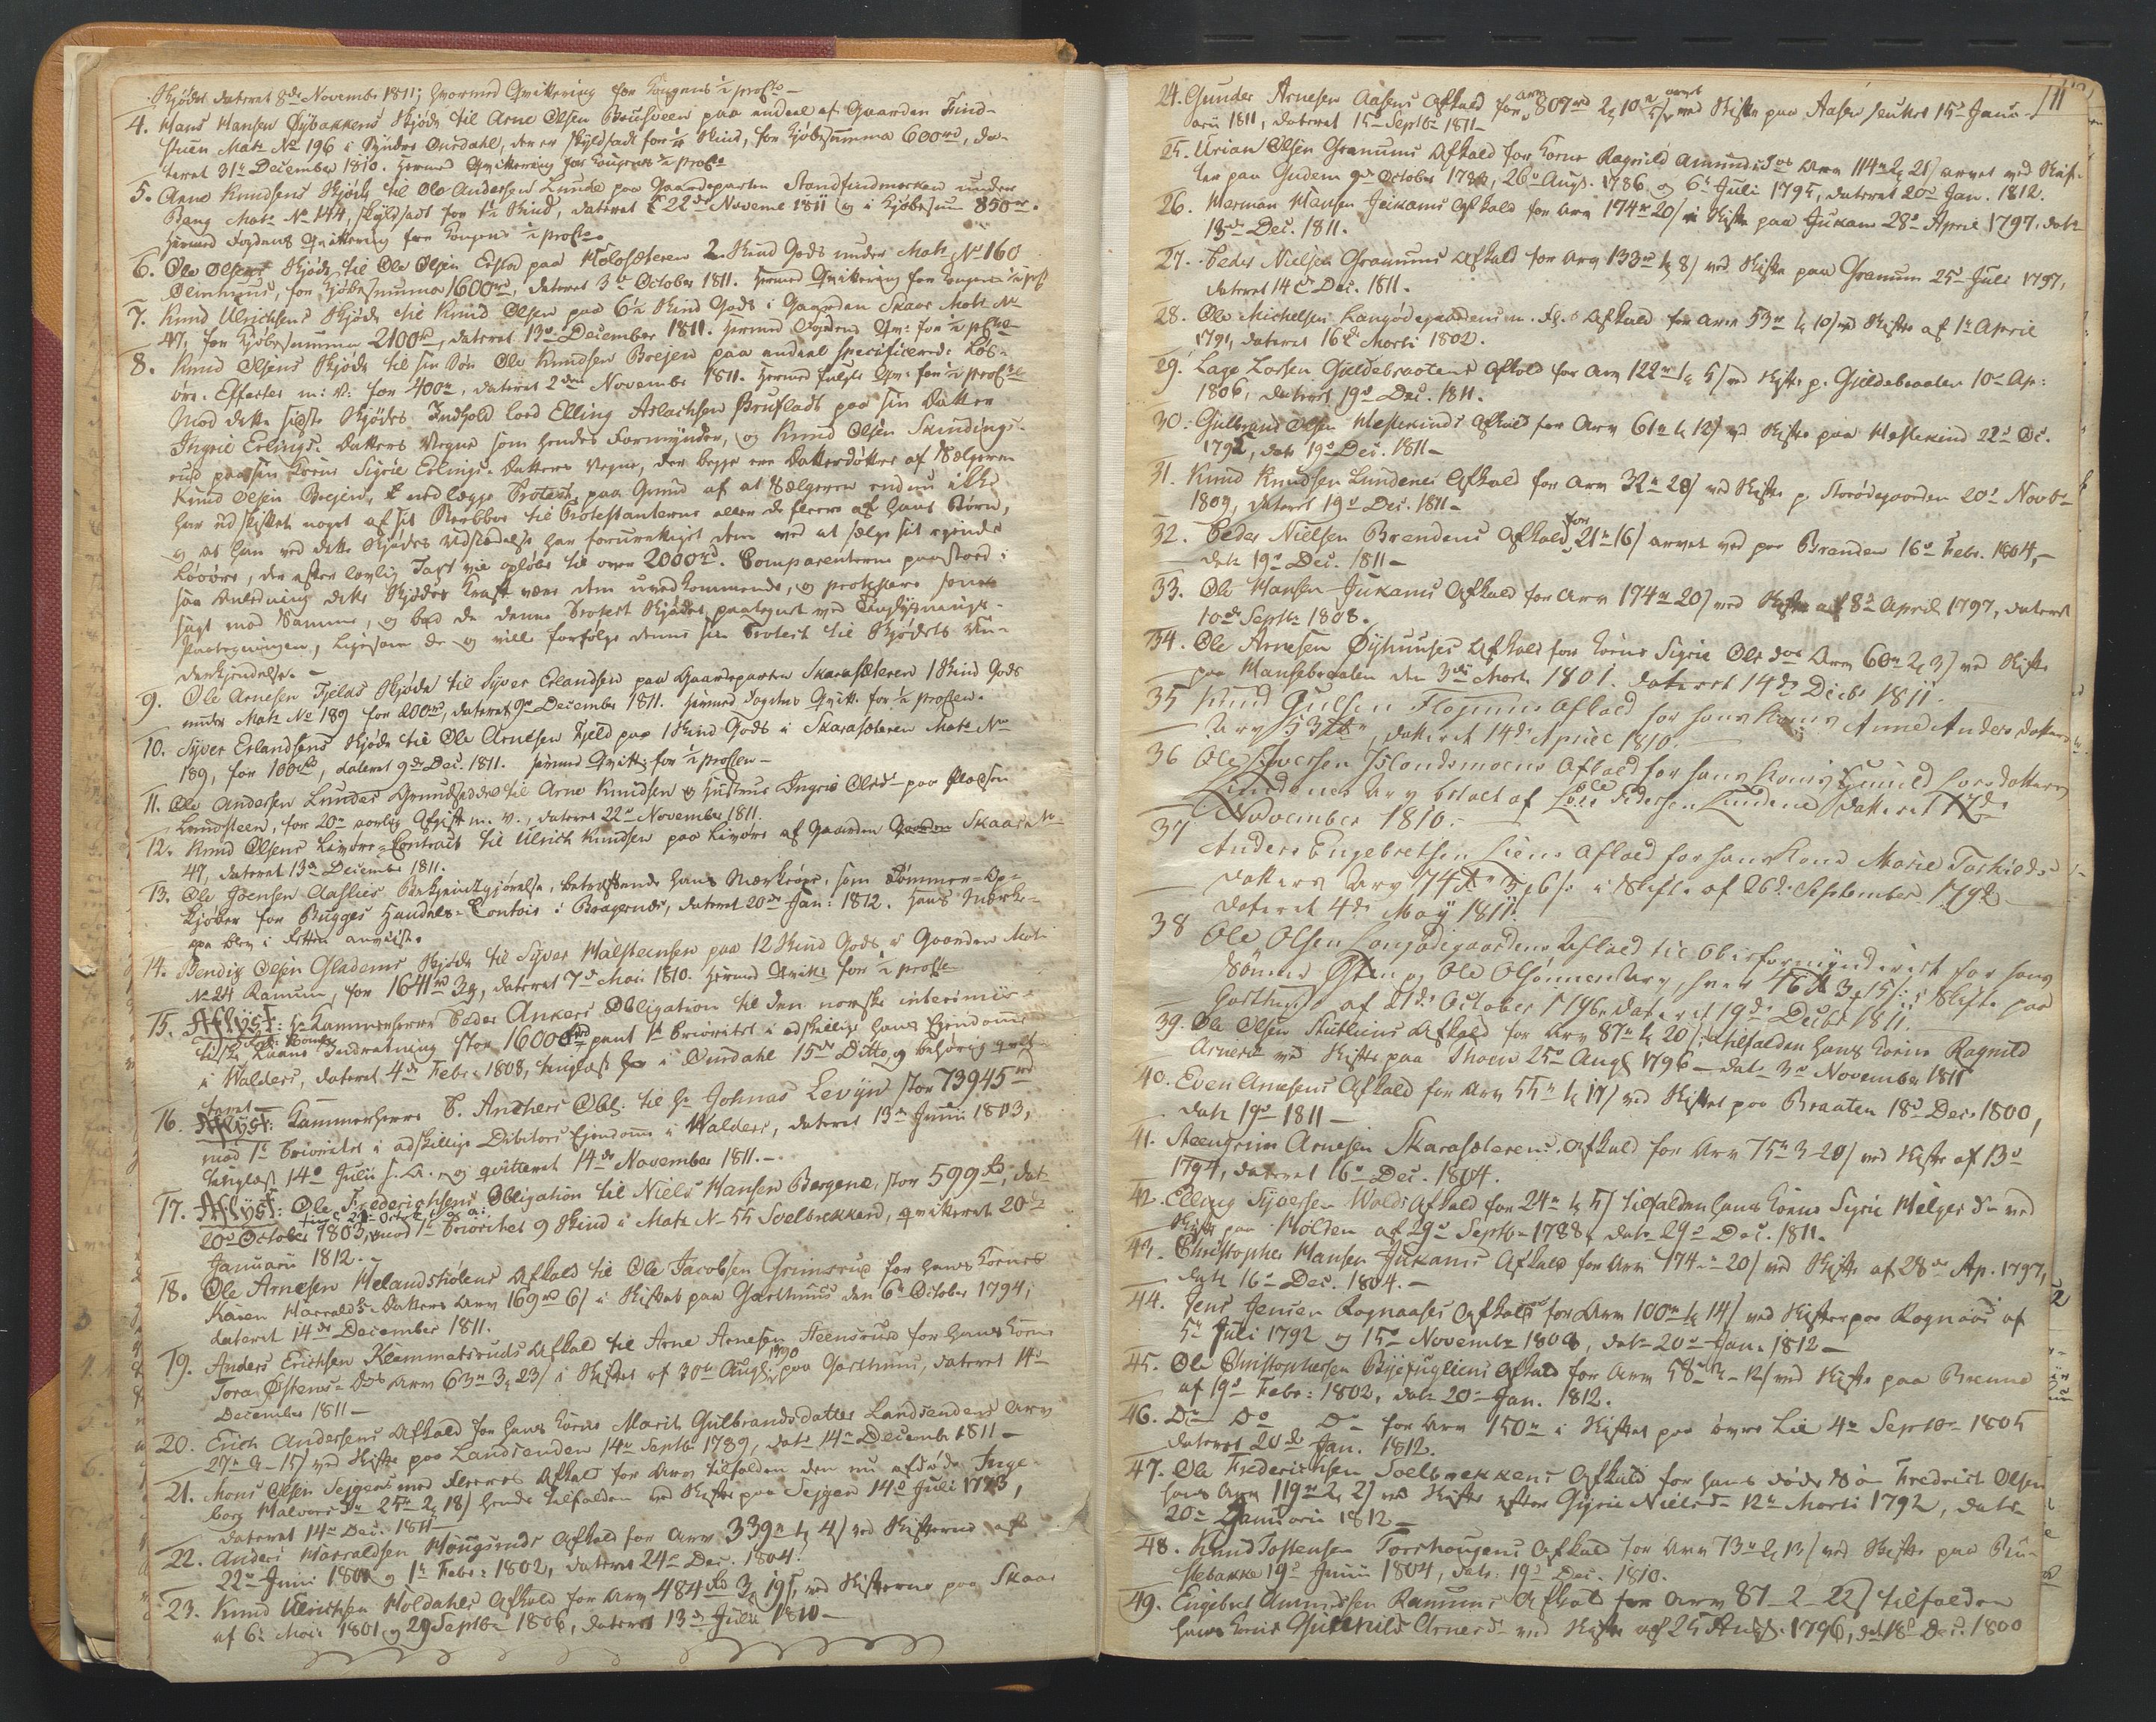 Skjøde dateret 8de November 1811; hvormed Qvittering for Kongens ½ proCto –
4. Hans Hansen Øybakkens Skjøde til Arne Olsen Brusveen paa endeel af Gaarden Find-
stuen Matr No 196 i Syndre Ourdahl, der er skyldsadt for ½ Skind, for Kjøbesumma 600rd, da-
teret 31te December 1810. Hermed Qvittering for Kongens ½ proCto
5. Arne Knudsens Skjøde til Ole Andersen Lunde paa Gaardeparten Strandfindmarken under
Bang Matr No 144, skyldsadt for 1½ Skind, dateret 22de Novembr 1811 og i Kjøbesum 850rd.
Hermed Fogdens Qvittering for Kongens ½ proCto
6. Ole Olsens Skjøde til Ole Olsen paa Holosæteren 2 Skind Gods under Matr No 160
for Kjøbesumma 1600rd, dateret 3de October 1811. Hermed Qvittering for Kongens ½ pCt
7. Knud Ulrichsens Skjøde til Knud Olsen paa 6½ Skind Gods i Gaarden Skaar Matr No
47, for Kjøbesumma 2100rd, dateret 13de December 1811. Hermed Fogdens Qv: for ½ pCto
8. Knud Olsens Skjøde til sin Søn Ole Knudsen Breien paa endeel specificered: Løs-
øre. Effecter m: v: for 400rd, dateret 2den November 1811. Hermed fulgte Qv: for ½ proCto
Mod dette sidste Skjødes Indhold lod Elling Aslachsen Brufladt paa sin Datter
Ingrie Erlings- Datters Vegne som hendes Formynder, og Knud Olsen Skinding-
rud paa sin Kones Sigrie Erlings- Datters Vegne, der begge ere Datterdøttre af Sælgeren
Knud Olsen Breien, nedlægge Protest, paa Grund af at Sælgeren endnu ikke
har udskiftet noget af sit Boe til Protestanterne eller de fleere af hans Børn,
og at han ved dette Skjødes Udstædelse har forurettiget dem ved at sælge sit eiende
Løsøre, der efter lovlig Taxt vil opløbe til over 2000rd. Comparenterne paastod i
saa Anledning dette Skjødes Kraft være dem uvedkommende, og protesterer saaled
sagt mod Samme, og bad de denne Protest Skjødet paategnet ved Tinglysnings-
Paategningen, ligesom de og ville forfølge denne sin Protest til Skjødets Un-
derkjendelse. –
9. Ole Arnesen Fjelds Skjøde til Syver Erlandsen paa Gaardeparten Skarasæteren 1 Skind Gods
under Matr No 189 for 200rd, dateret 9de December 1811. Hermed Fogdens Qvitt. for ½ proCten.
10. Syver Erlandsens Skjøde til Ole Arnesen Fjeld paa 1 Skind Gods i Skarasæteren Matr No
189, for 100rd, dateret 9de Dec. 1811. Hermed Qvitt: for ½ proCten –
11. Ole Andersen Lundes Grundseddel til Arne Knudsen og Hustrue Ingrie Olsdr paa Pladsen
Lundsteen, for 20rd aarlig Afgift m. v., dateret 22de November 1811.
12. Knud Olsens Livøre-Contract til Ulrich Knudsen paa Livøre af Gaarden Skaar No
47, dateret 13de December 1811.
13. Ole Joensen Aasliens Bekjendtgjørelse, betræffende hans Mærkeøxe, som Tømmer-Op-
kjøber for Bugges Handels-Contoir i Bragernæs, dateret 20de Jan: 1812. Hans Mærke-
øxe blev i Retten anviist.
14. Bendix Olsen Gladems Skjøde til Syver Halsteinsen paa 12 Skind Gods i Gaarden Matr
No 24 Ranum, for 1641rd 3, dateret 7de Maii 1810. Hermed Qvittr for ½ proCto
15. Aflyst: Hr Kammerherre Peder Ankers Obligation til den norske interimis-
tiske Laane Indretning stor 16000rd pent 1te Prioritet i adskillige hans Ejendomme
i Walders, dateret 4de Febr: 1808, tinglæst i Ourdahl 15de Ditto, og behørig qvit-
teret –
16. Aflyst: Kammerherre P. Anchers Obl: til Hr Johnas Levyn stor 73945rd
mod 1te Prioritet i adskillige Debitors Ejendomme i Walders, dateret 13de Junii 1803,
tinglæst 14de Julii s. A. og qvitteret 14de November 1811. –
17. Aflyst: Ole Frederichsens Obligation til Niels Hansen Bergene, stor 599rd, dat.
20de October 1803, mod 1te Prioritet 9 Skind i Matr No 55 Soelbrekken, qvitteret 20de
Januarii 1812. –
18. Ole Arnesen Melandsstølens Afkald til Ole Jacobsen Grimsrud for hans Kones
Karen Harralds-Datters Arv 169rd 6s i Skiftet paa Garthuus den 6te October 1794;
dateret 14de December 1811.
19. Anders Erichsen Klammatsruds Afkald til Arne Arnesen Steensrud for hans Kones
Tora Østens-Drs Arv 63rd 3 23s i Skiftet af 30te Aug. 1790 paa Garthuus, dateret 14de
December 1811 –
20. Erich Andersens Afkald for hans Kones Marit Gulbrandsdatter Landsendens Arv
27rd 15s ved Skifte paa Landsenden 14de Septbr 1789, datr 14de Decembr 1811 –
21. Mons Olsen Seigens med fleeres Afkald for Arv tilfalden den nu afdøde Inge-
borg Halvors Dr 25rd 2 18s hende tilfalden ved Skifte paa Seigen 14de Juli 1773,
dateret 14de Dec. 1811 –
22. Anders Harraldsen Hougsruds Afkald for Arv 339rd 4s ved Skifterne af
22de Junii 1801 og 1te Febr: 1802, dateret 24de Dec. 1804.
23. Knud Ulrichsen Holdahls Afkald for Arv 484rd 3 19s, ved Skifterne paa Skaar
af 6te Maii 1801 og 29 Septbr 1806, dateret 13de Julii 1810 –
11
24. Gunder Arnesen Aasens Afkald for Arv 807rd 2 10s arvet ved Skifte paa Aasen sluttet 15de Janu-
arii 1811, dateret 15de Septbr 1811 –
25. Urian Olsen Granums Afkald for Kone Ragnild Amundsdrs Arv 114rd 2 21s arvet ved Skif-
ter paa Gudem 9de October 1782, 26de Aug. 1786 og 6te Juli 1795, dateret 20de Jan. 1812.
26. Herman Hansen Jukams Afkald for Arv 174rd 20s i Skifte paa Jukam 28de April 1797, datr
18de Dec. 1811.
27. Peder Nielsen Granums Afkald for Arv 133rd 8s ved Skifte paa Granum 25de Juli 1797,
dateret 14de Dec. 1811.
28. Ole Michelsen Langødegaardens m. fl.s Afkald for Arv 53rd 10s ved Skifte af 1te April
1791, dateret 16de Marti 1802.
29. Lage Larsen Gjuldebraatens Afkald for Arv 122rd 5s ved Skifte p. Gjuldebraaten 10de Ap:
1806, dateret 19de Dec. 1811.
30. Gulbrand Olsen Hestekinds Afkald for Arv 61rd 12s ved Skifte paa Hestekind 22de Oc.
1792, datr 19de Dec. 1811 –
31. Knud Knudsen Lundenes Afkald for Arv 32rd 28s ved Skifte p. Storødegaarden 20de Novbr
1809, dateret 19de Dec. 1811 –
32. Peder Nielsen Brendens Afkald for 21rd 16s arvet ved paa Brenden 16de Febr. 1804, –
datr 19de Dec. 1811 –
33. Ole Hansen Jukams Afkald for Arv 174rd 20s ved Skifte af 8de April 1797, dateret
10de Septbr 1808.
34. Ole Arnesen Øyhuuses Afkald for Kones Sigrie Olsdrs Arv 60rd 2 3s ved Skifte
paa Hansebraaten den 3die Marti 1801. dateret 14de Decbr 1811
35 Knud Gulsen Flojums Afkald for hans Kones Anne Anders datters
Arv 53rd, datteret 14de Apriel 1810.
36 Ole Siversen Islandsmoens Afkald for hans Kones Gunild Larsdatters
Lundenes Arv betalt af Ole Pedersen Lundene datteret 17de
November 1810. –
37 Anders Engebretsen Liens Afkald for hans Kone Marie Torkields-
datters Arv 74rd 3 6s: i Skifte af 26de September 1792
dateret 4de May 1811.
38 Ole Olsen Langødegaardens Afkald til Oberformynderiet for hans
Sønner Østen og Ole Olsønners Arv, hver 16rd 3 15s: i Skifte paa
Garthuus af 21de October 1796 dateret 19de Decbr 1811.
39. Ole Olsen Skutliens Afkald for Arv 87rd 20s: tilfalden hans Kone Ragnild
Arnesdr ved Skifte paa 25de Aug. 1796 – datr 3de November 1811
40. Even Arnesens Afkald for Arv 55rd 17s ved Skiftet paa Braaten 18de Dec. 1800,
datr 19de 1811 –
41. Steengrim Arnesen Skarasæterens Afkald for Arv 75rd 3 20s ved Skifte af 13de
1794, dateret 16de Dec. 1804.
42. Elling Syversen Wolds Afkald for 24rd 5s tilfalden hans Kone Sigrie Helges Dr ved
Skifte paa Holden af 29de Septbr 1788, datr 29de Dec. 1811.
43. Christopher Hansen Jukams Afkald for Arv 174rd 20s ved Skifte af 28de Ap. 1797,
datr 16de Dec. 1804. –
44. Jens Jensen Rognaases Afkald for Arv 100rd 14s ved Skifter paa Rognaas af
5te Juli 1792 og 15de Novembr 1808, datr 20de Jan. 1812 –
45. Ole Christophersen Bijefugliens Afkald for Arv 58rd 12s ved Skifte paa Brenna
af 19de Febr: 1802, datr 20de Jan. 1812.
46. Do Do Do for Arv 150rd i Skiftet paa øvre Lie 4de Septbr 1805
dateret 20de Jan. 1812.
47. Ole Frederichsen Soelbrekkens Afkald for hans døde Søn Fredrich Olsen
hans Arv 119rd 2 2s ved Skifte efter Gjyri Nielsdr 12te Marti 1792, datr
20de Januarii 1812 –
48. Knud Tostensen Torshougens Afkald for Arv 73rd 13s ved Skifte paa Ru-
stebakke 19de Junii 1804, datr: 19de Dec. 1810.
49. Engebret Amundsen Ranums Afkald for Arv 87 – 2 – 22s tilfalden
hans Kone Gunhild Arnesdr ved Skifte af 25 Aug. 1796, dat 18de Dec. 1800